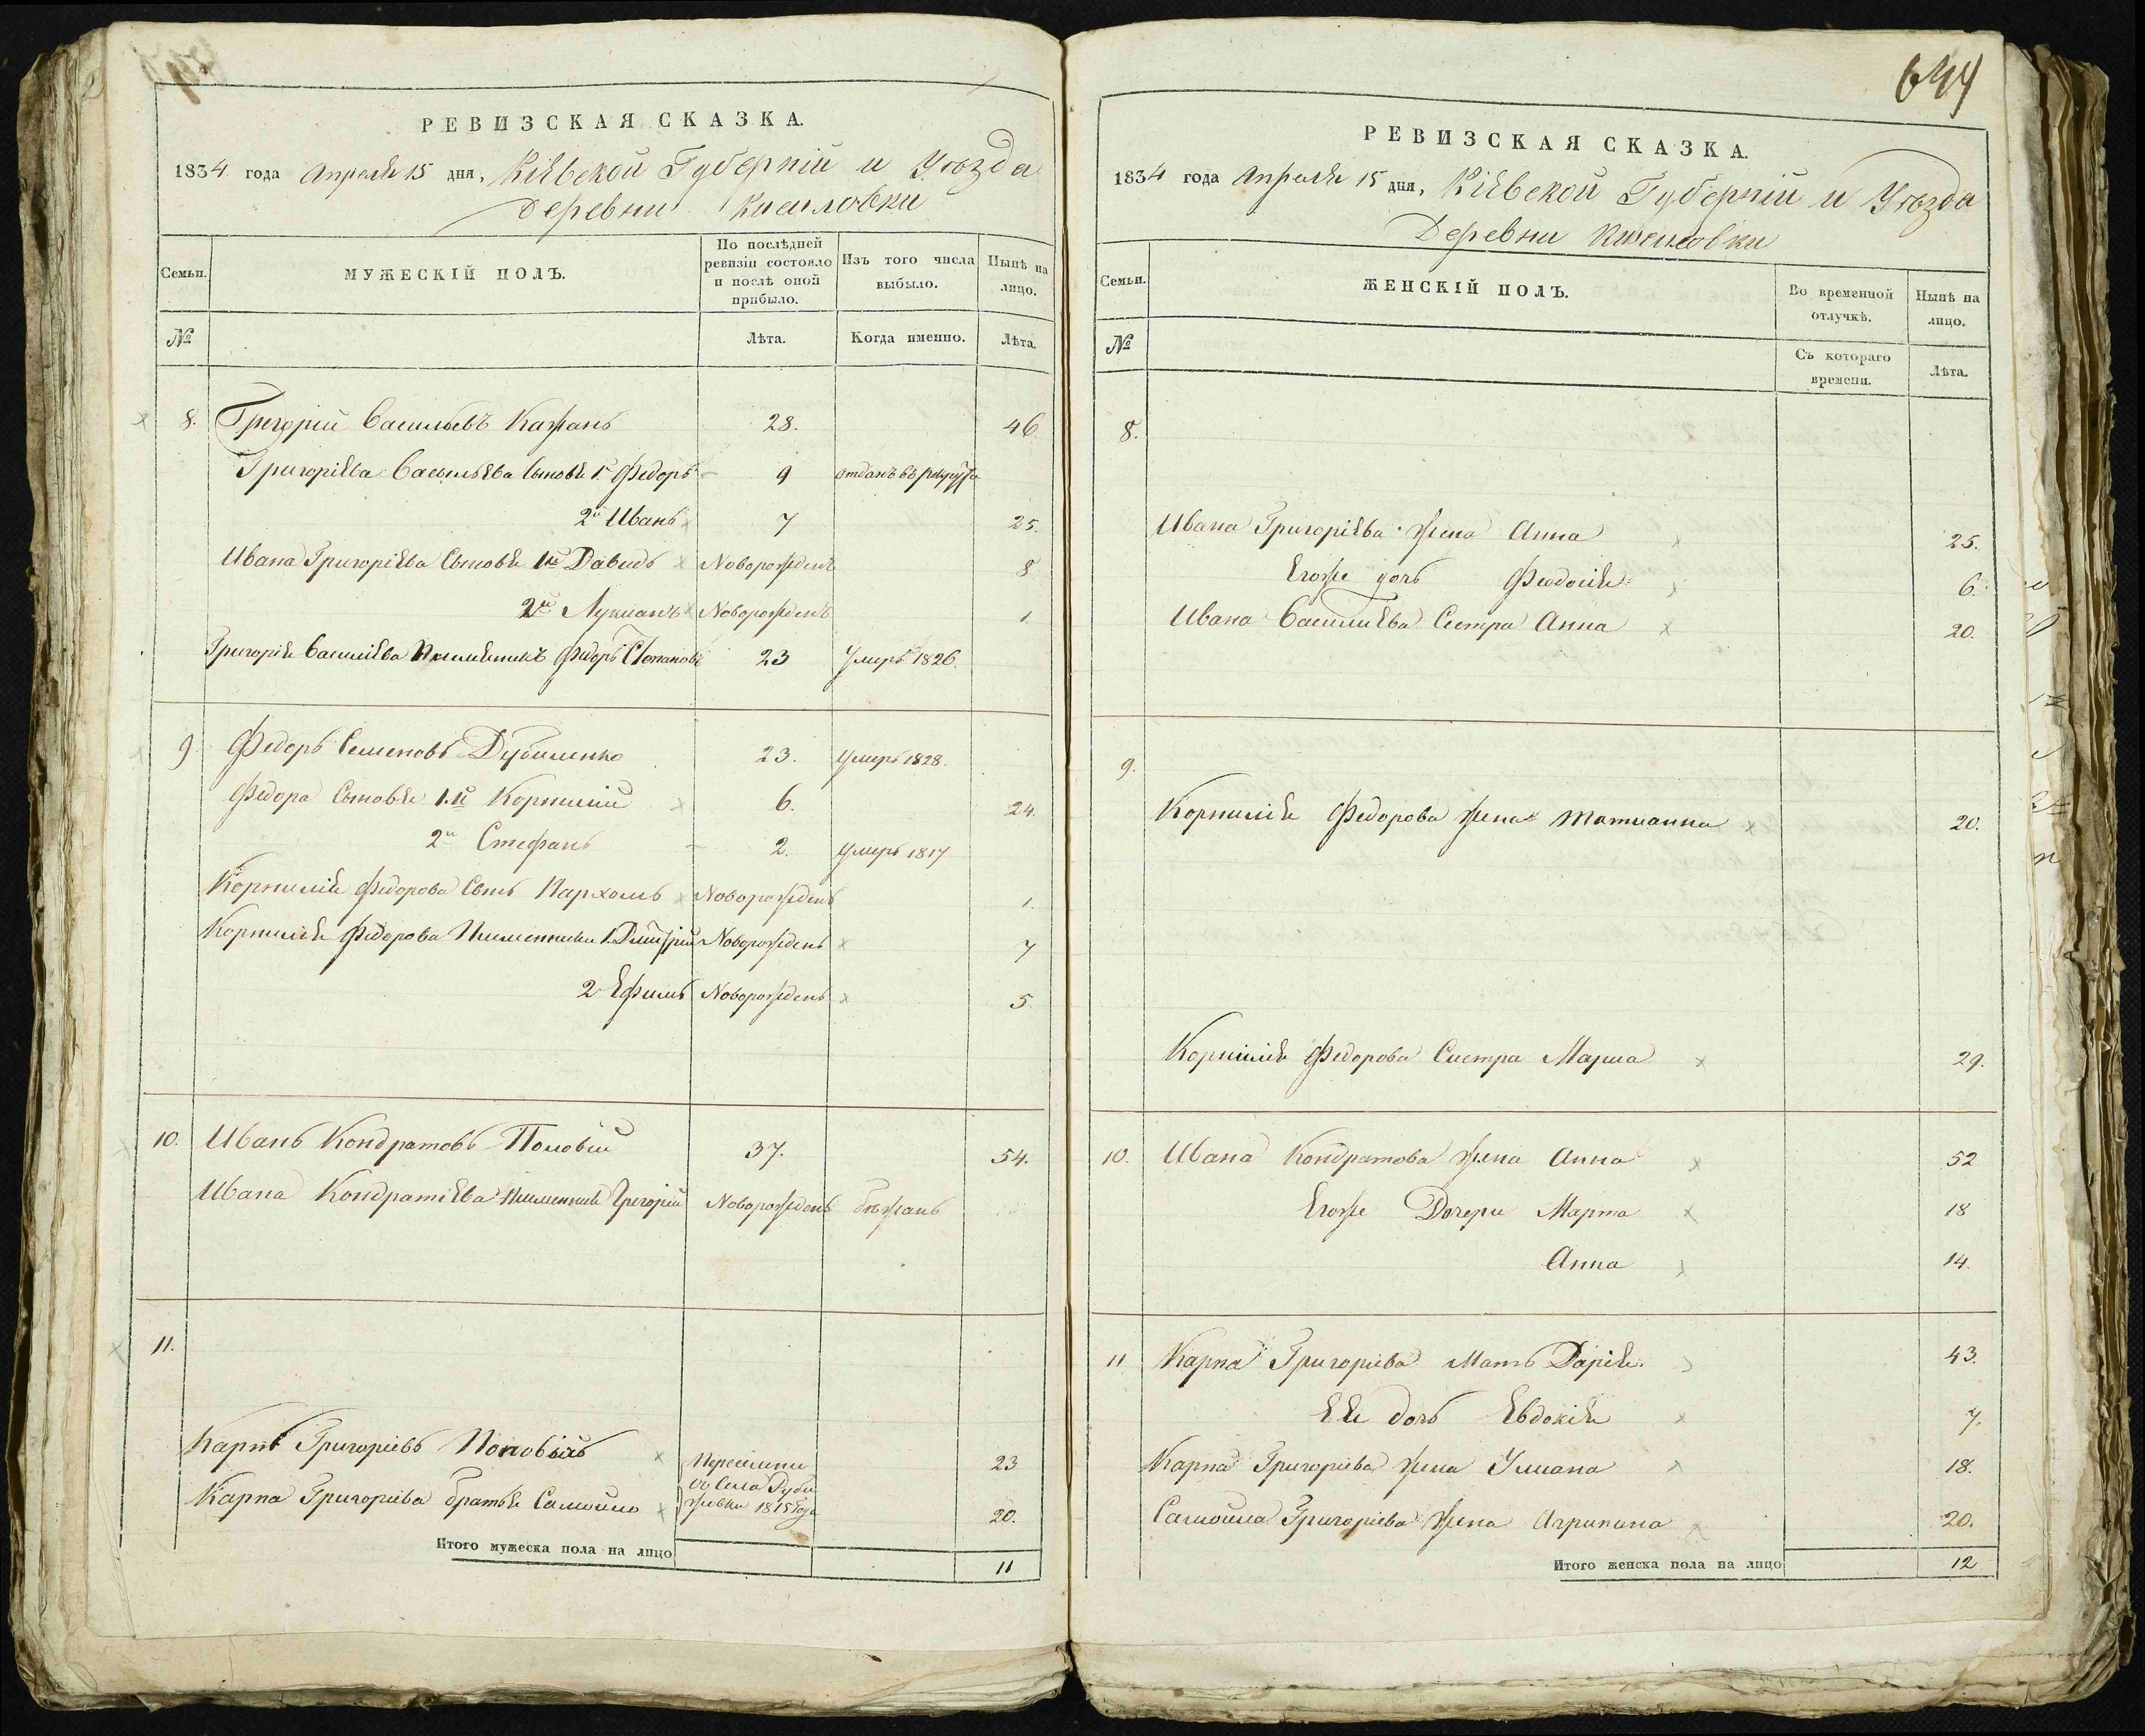 РЕВИЗСКАЯ СКАЗКА.
1834 года Апреля 15 дня, Кіевской Губерніи и Уѣзда
Деревни
Семьи.
МУЖЕСКІЙ ПОЛЪ.
По послѣдней ревизіи состояло и послѣ оной прибыло.
Изъ того числа выбыло.
Нынѣ на лицо.
№
Лѣта.
Когда именно.
Лѣта.
8. Григорій Васильевъ Кажанъ 28. 46
Григоріева Васильева Сыновья 1й Федоръ 9 отданъ въ рекруты
2й Иванъ 7 25.
Ивана Григоріева Сыновья 1й Давидъ Новорожденъ 8
2й Лукианъ Новорожденъ 1
Григорія Василіева Племянникъ Федоръ Степановъ 23 Умеръ 1826.
9. Федоръ Семеновъ 23. Умеръ 1828.
Федора Сыновья 1.й Корнилій 6. 24.
2й Стефанъ 2. Умеръ 1817
Корнилія Федорова Сынъ Пархомъ Новорожденъ 1.
Корнилія Федорова Племянники 1 Дмитрій Новорожденъ 7
2 Ефимъ Новорожденъ 5
10. Иванъ Кондратовъ 37. 54.
Ивана Кондратіева Племянникъ Григорій Новорожденъ бѣжалъ
11.
Карпъ Григоріевъ 23
Карпа Григоріева братья Самойло 20.
Переселены
съ Села
1815 года
Итого мужеска пола на лицо 11
644
РЕВИЗСКАЯ СКАЗКА.
1834 года Апреля 15 дня, Кіевской Губерніи и Уѣзда
Деревни
Семьи.
ЖЕНСКІЙ ПОЛЪ.
Во временной отлучкѣ.
Нынѣ на лицо.
№
Съ котораго времени.
Лѣта.
8.
Ивана Григоріева жена Анна 25.
Егоже дочь Феодосія 6.
Ивана Василиева Сестра Анна 20.
9.
Корнилія Федорова жена Татианна 20.
Корнилія Федорова Сестра Мариа 29.
10. Ивана Кондратова жена Анна 52
Егоже Дочери Марта 18
Анна 14.
11 Карпа Григориева Мать Дарія 43.
Ея дочь Евдокія 7.
Карпа Григориева жена Улиана 18.
Самойла Григориева жена Агрипина 20.
Итого женска пола на лицо 12